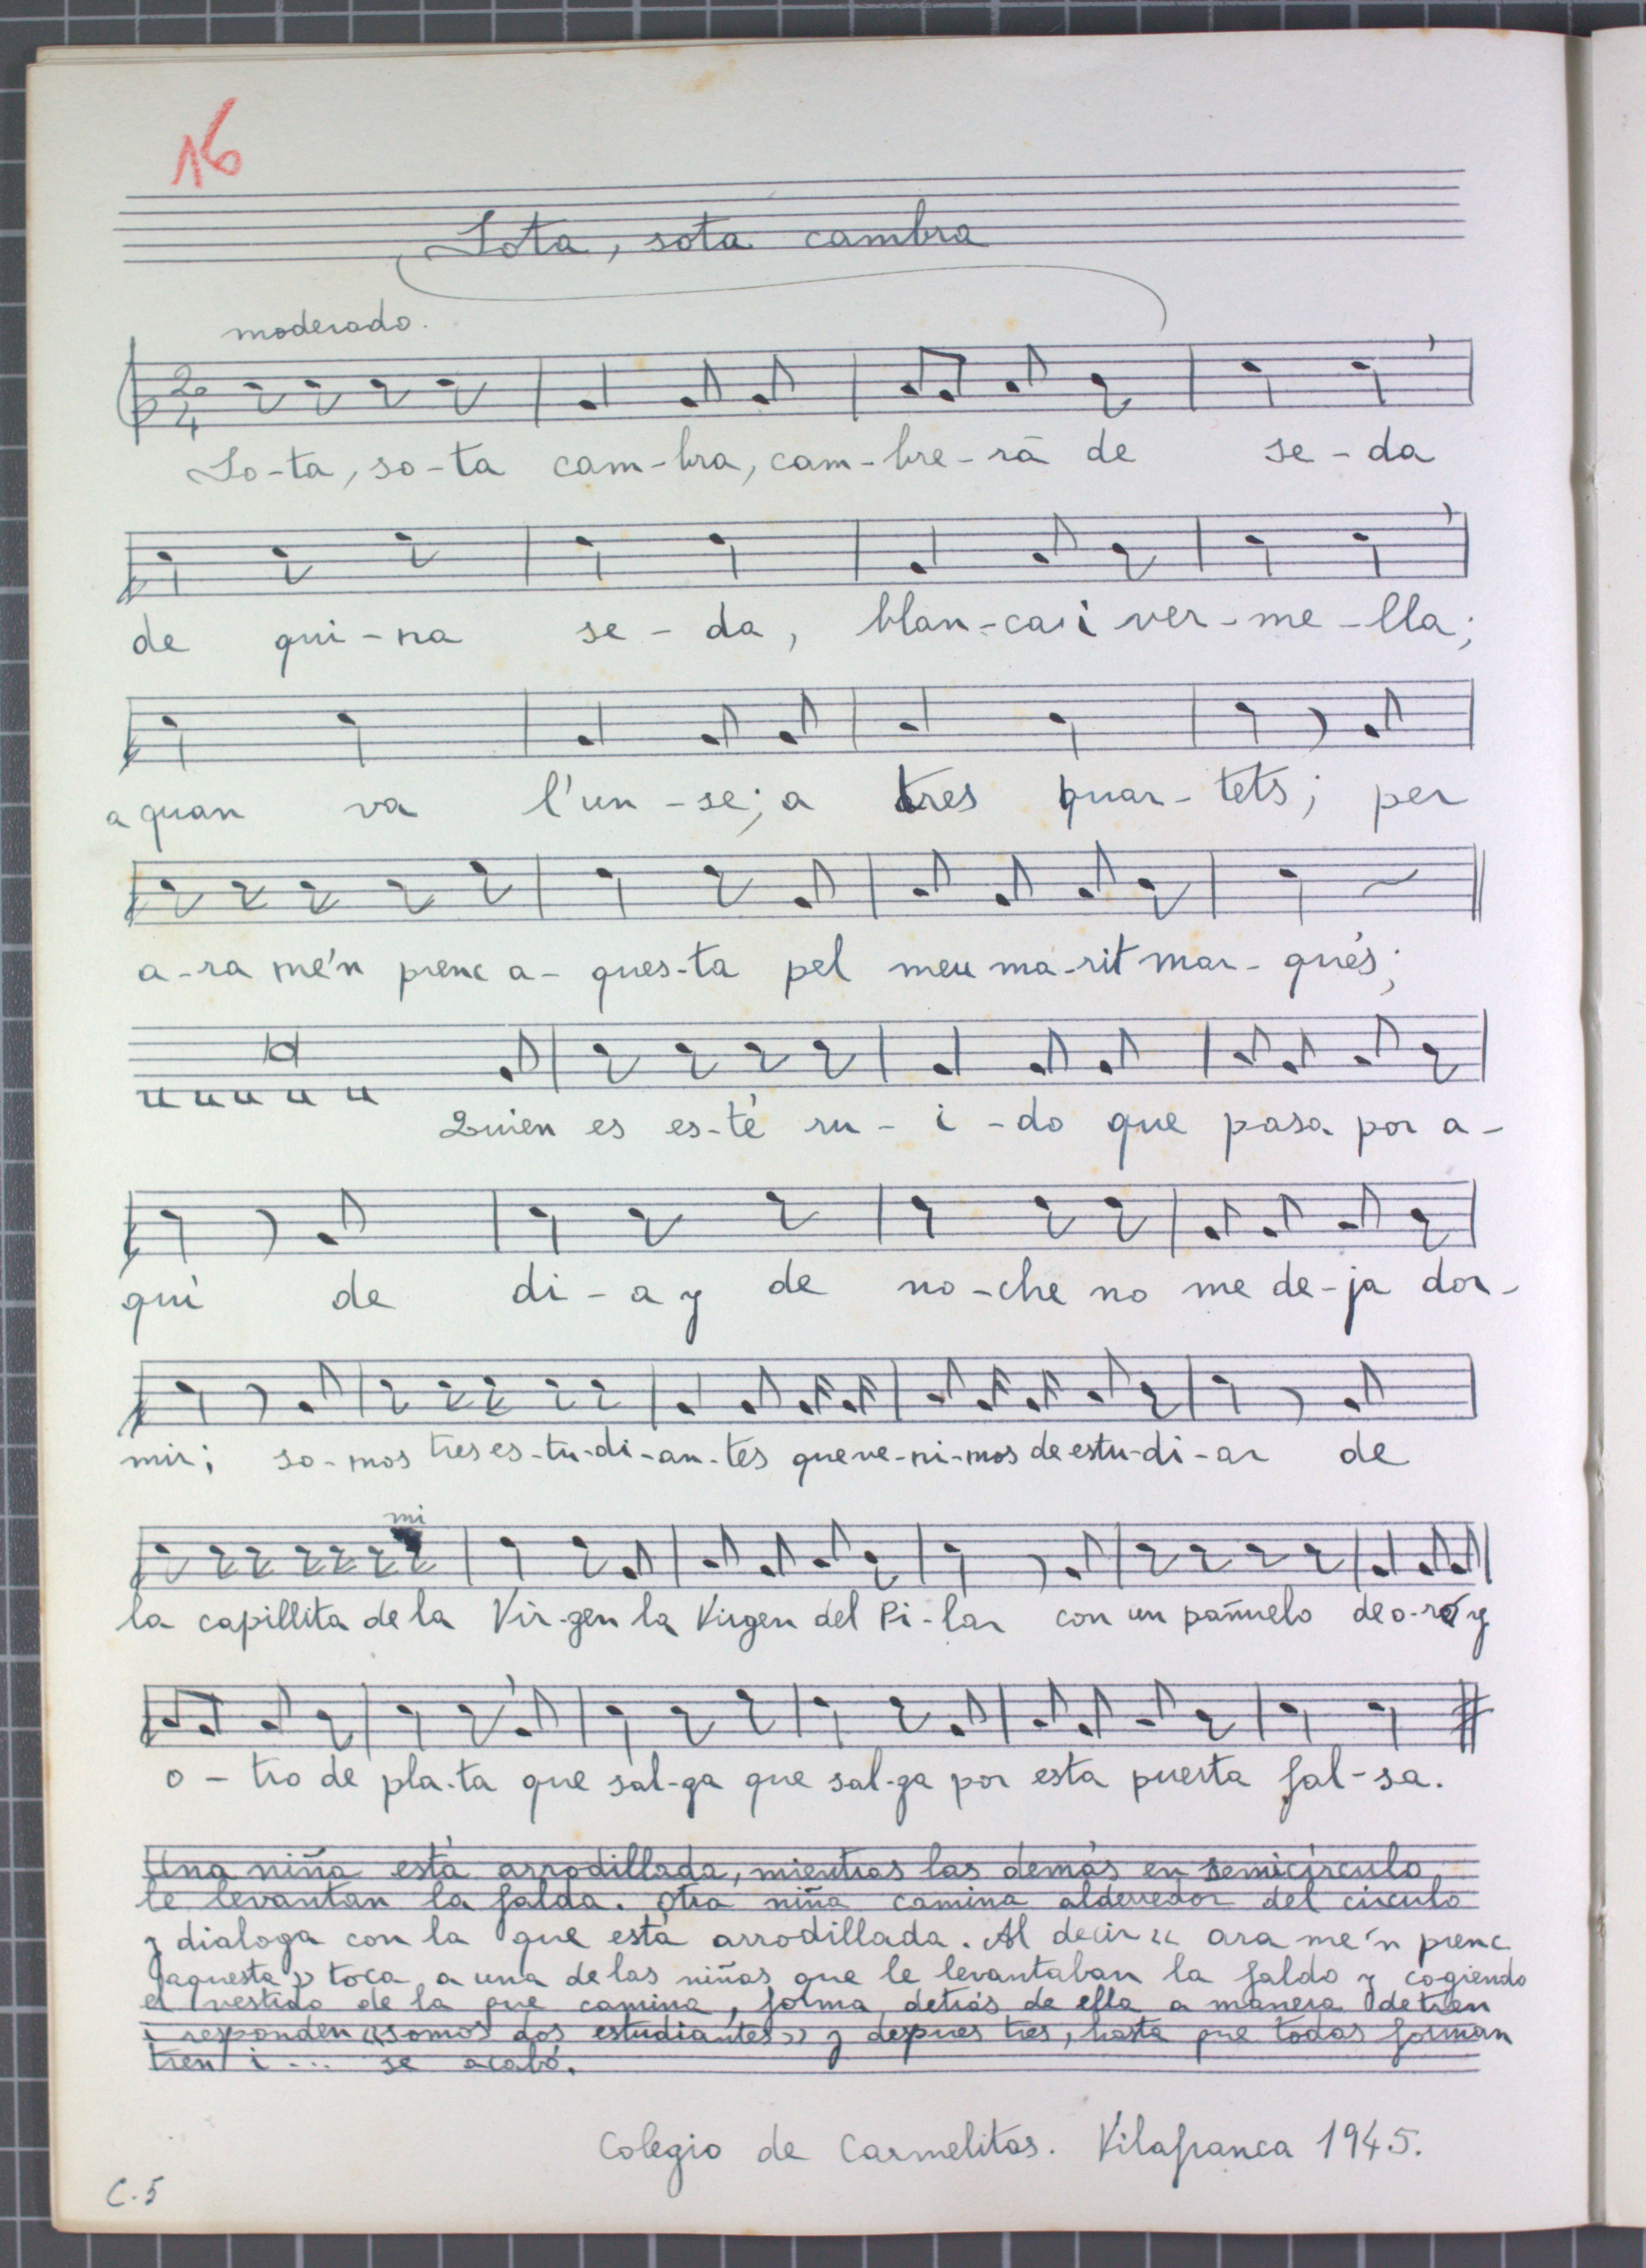 16
Sota, sota cambra
moderado.
2
4
So-ta, so-ta cam-bra, cam-bre-rà de se-da
de qui-na se-da, blan-ca i ver-me-lla;
a quan va l'un-se; a tres quar-tets; per
a-ra me'n prenc a-ques-ta pel meu ma-rit mar-qués;
Quien es es-té ru-i-do que pasa por a-
qui de di-a y de no-che no me de-ja dor-
mir; so-mos tres es-tu-di-an-tes que ve-ni-mos de estu-di-ar de
mi
la capillita de la Vir-gen la Virgen del Pi-lar con un pañuelo de o-ro y
o-tro de pla-ta que sal-ga que sal-ga por esta puerta fal-sa.
Una niña está arrodillada, mientras las demás en semicírculo
le levantan la falda. Otra niña camina alderredor del circulo
y dialoga con la que está arrodillada. Al decir << ara me'n prenc
aquesta >> toca a una de las niñas que le levantaban la falda y cogiendo
el vestido de la que camina, forma detrás de ella a manera de tren
i responden <<somos dos estudiantes>> y despues tres, hasta que todas forman
tren i ... se acabó.
Colegio de Carmelitas. Vilafranca 1945.
C.5